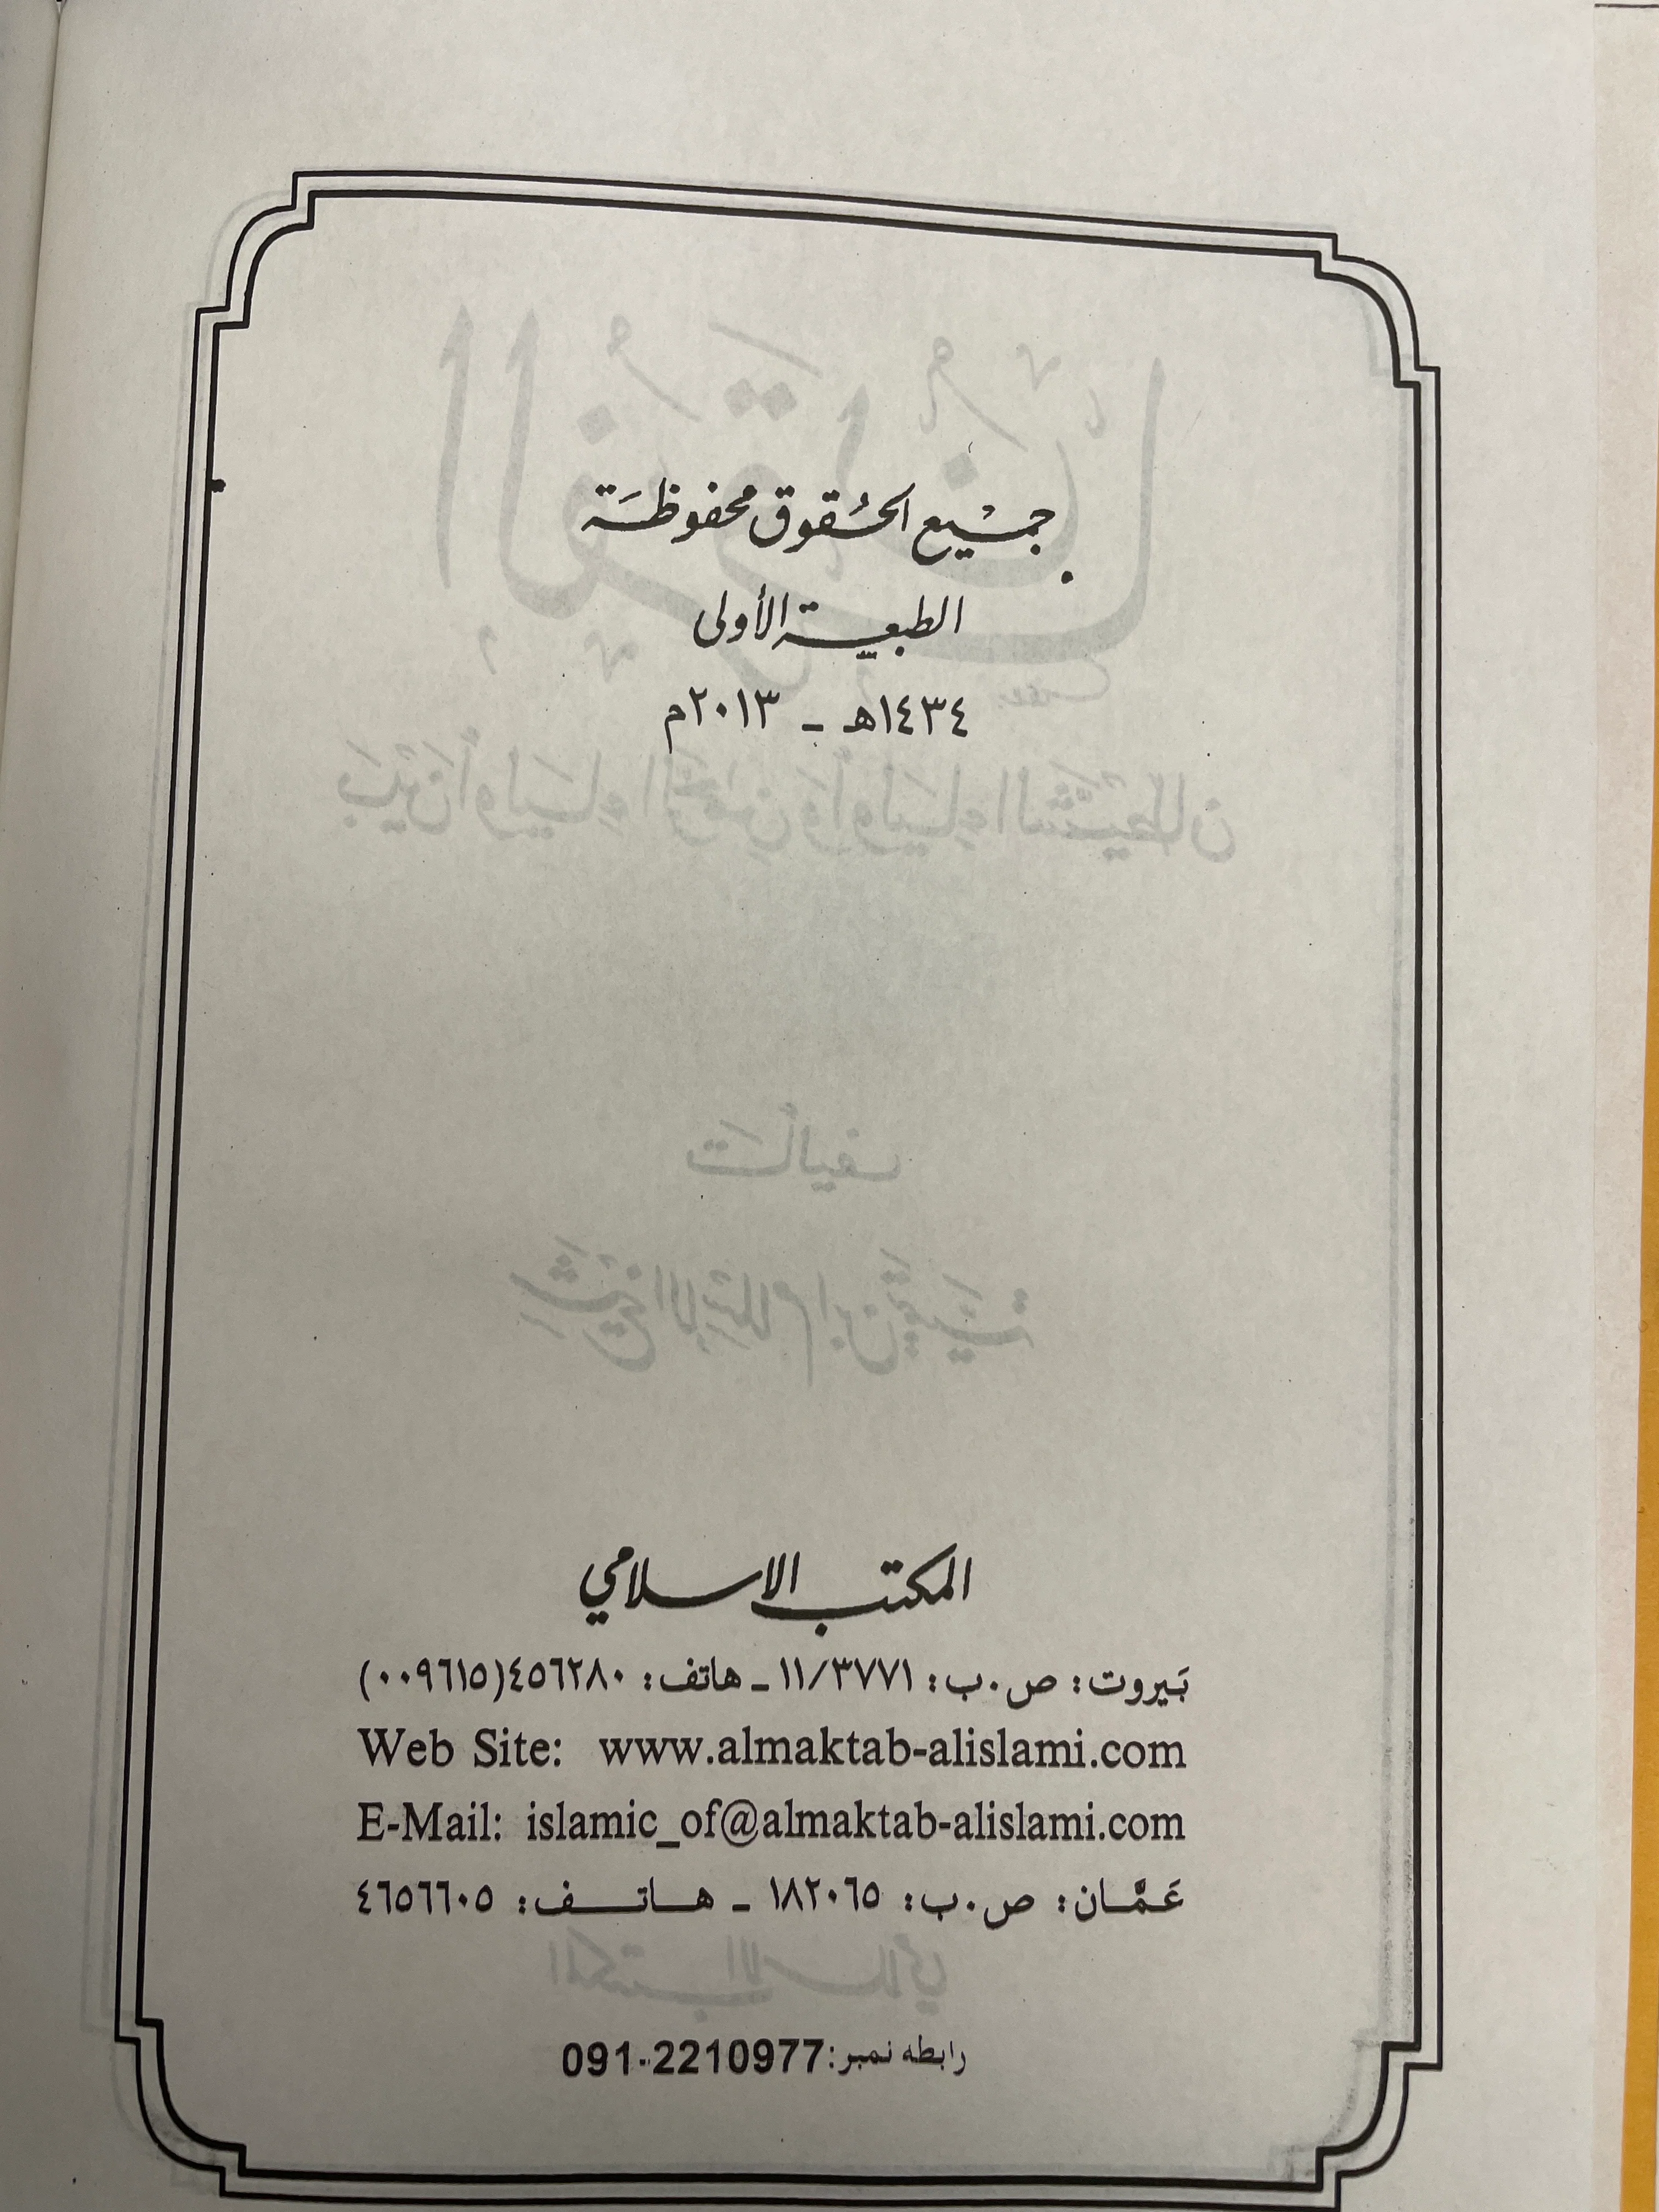 جميع الحقوق محفوظة
الطبعة الأولى
١٤٣٤هـ - ٢٠١٣م
المكتب الاسلامي
بَيروت: ص.ب: ١١/٣٧٧١ - هاتف: ٤٥٦٢٨٠(٠٠٩٦١٥)
Web Site: www.almaktab-alislami.com
E-Mail: islamic_of@almaktab-alislami.com
عَمَّان: ص.ب: ١٨٢٠٦٥ - هاتف: ٤٦٥٦٦٠٥
رابطه نمبر:091-2210977